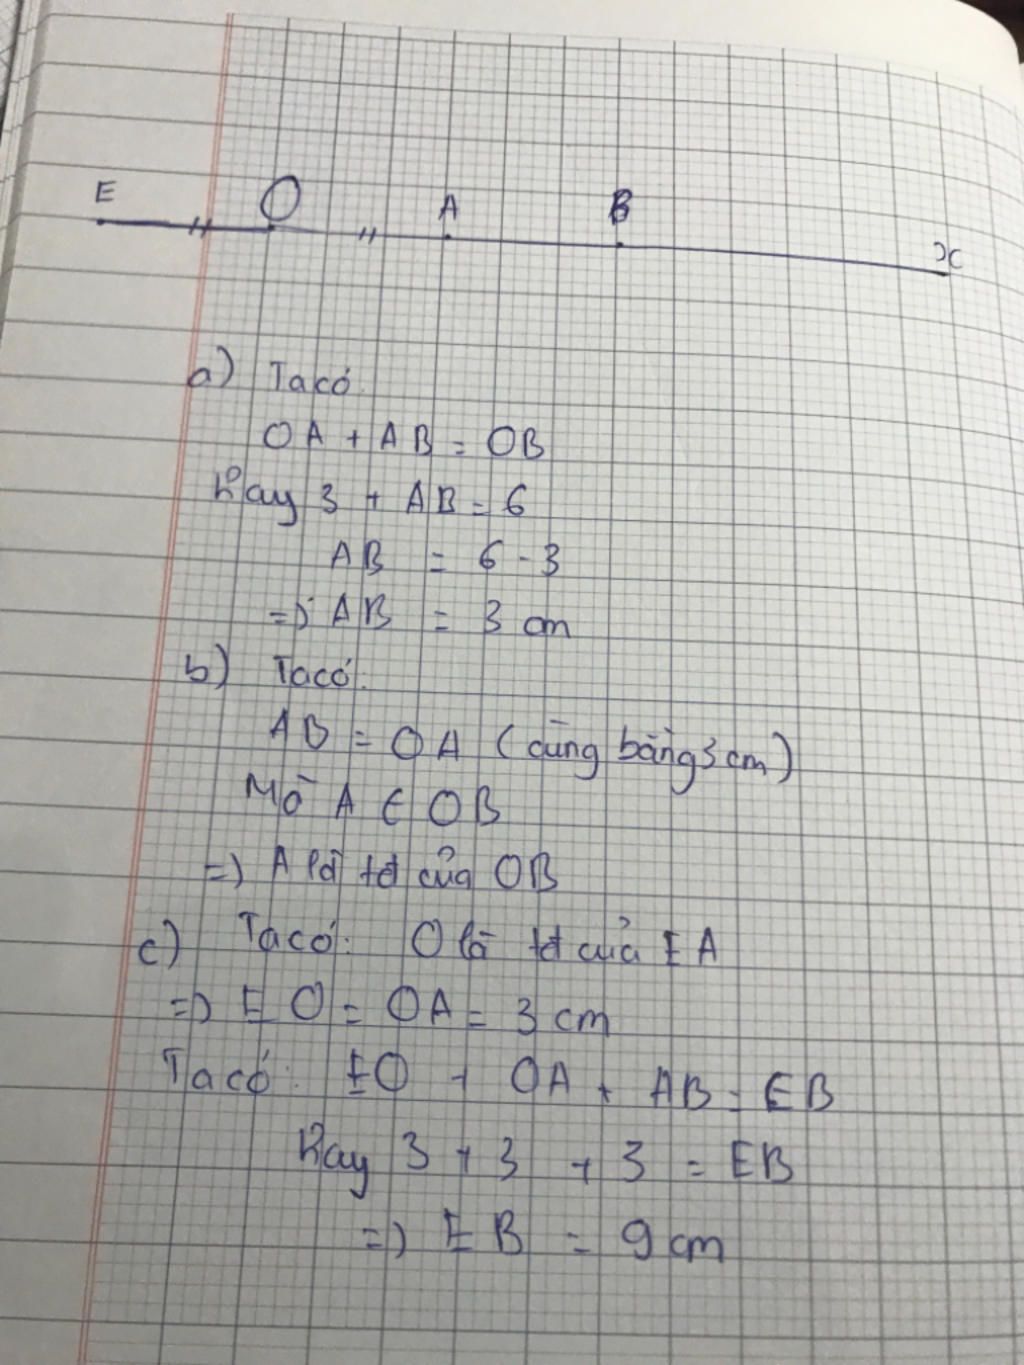 E O A B x
a) Ta có:
OA + AB = OB
Hay 3 + AB = 6
AB = 6 - 3
=> AB = 3 cm
b) Ta có:
AB = OA (cùng bằng 3 cm)
Mà A ∈ OB
=> A là tđ của OB
c) Ta có: O là tđ của EA
=> EO = OA = 3 cm
Ta có: EO + OA + AB = EB
Hay 3 + 3 + 3 = EB
=> EB = 9 cm